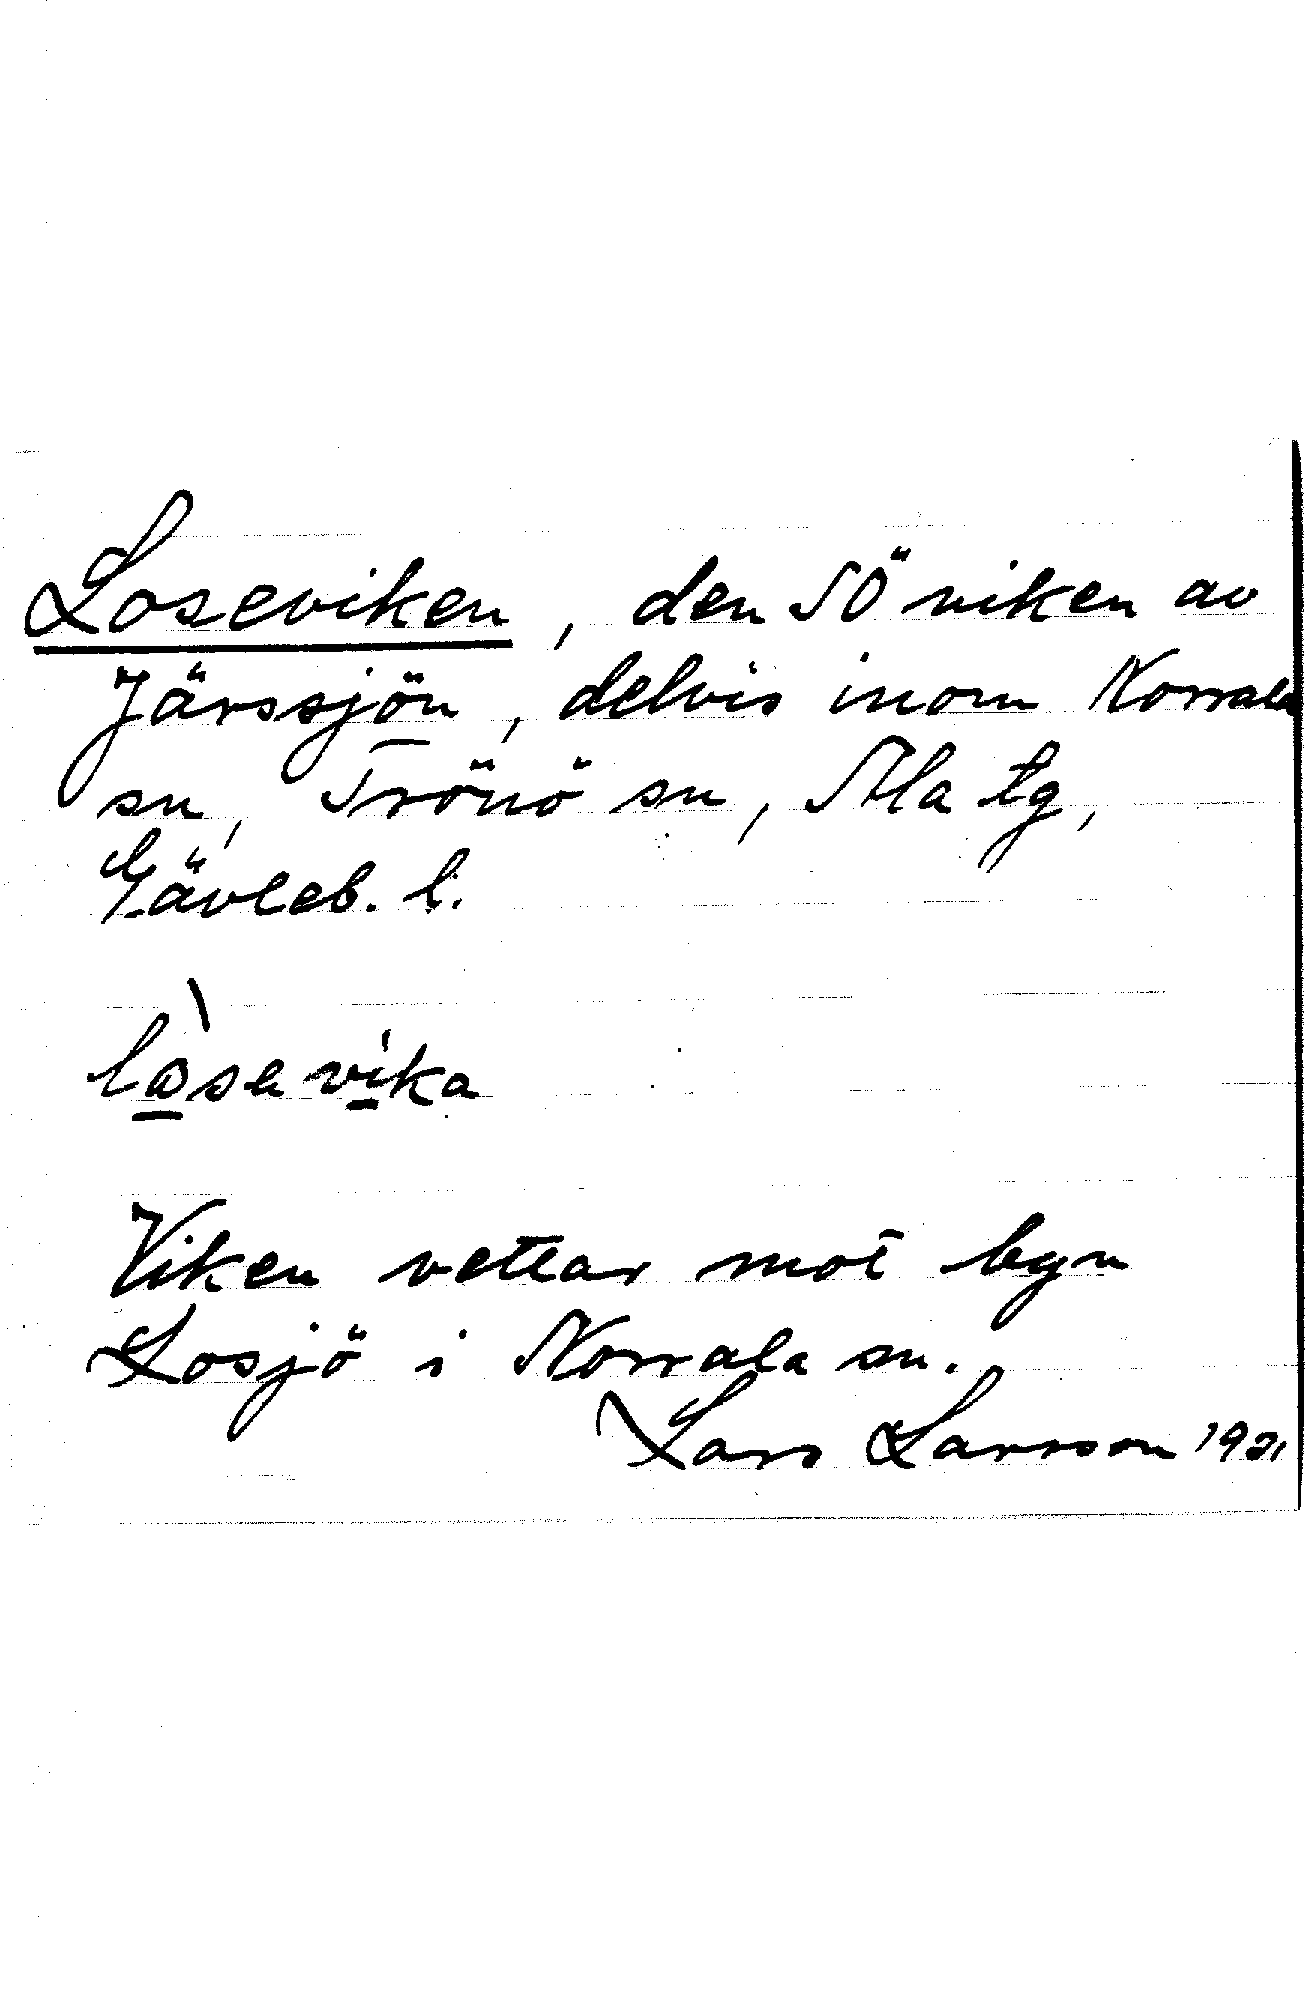 Loseviken, den SÖ viken av
Järssjön, delvis inom Norrala
sn, Trönö sn, Ala tg,
Gävleb. l.
Viken vettar mot byn
Losjö i Norrala sn.
Lars Larsson 1921